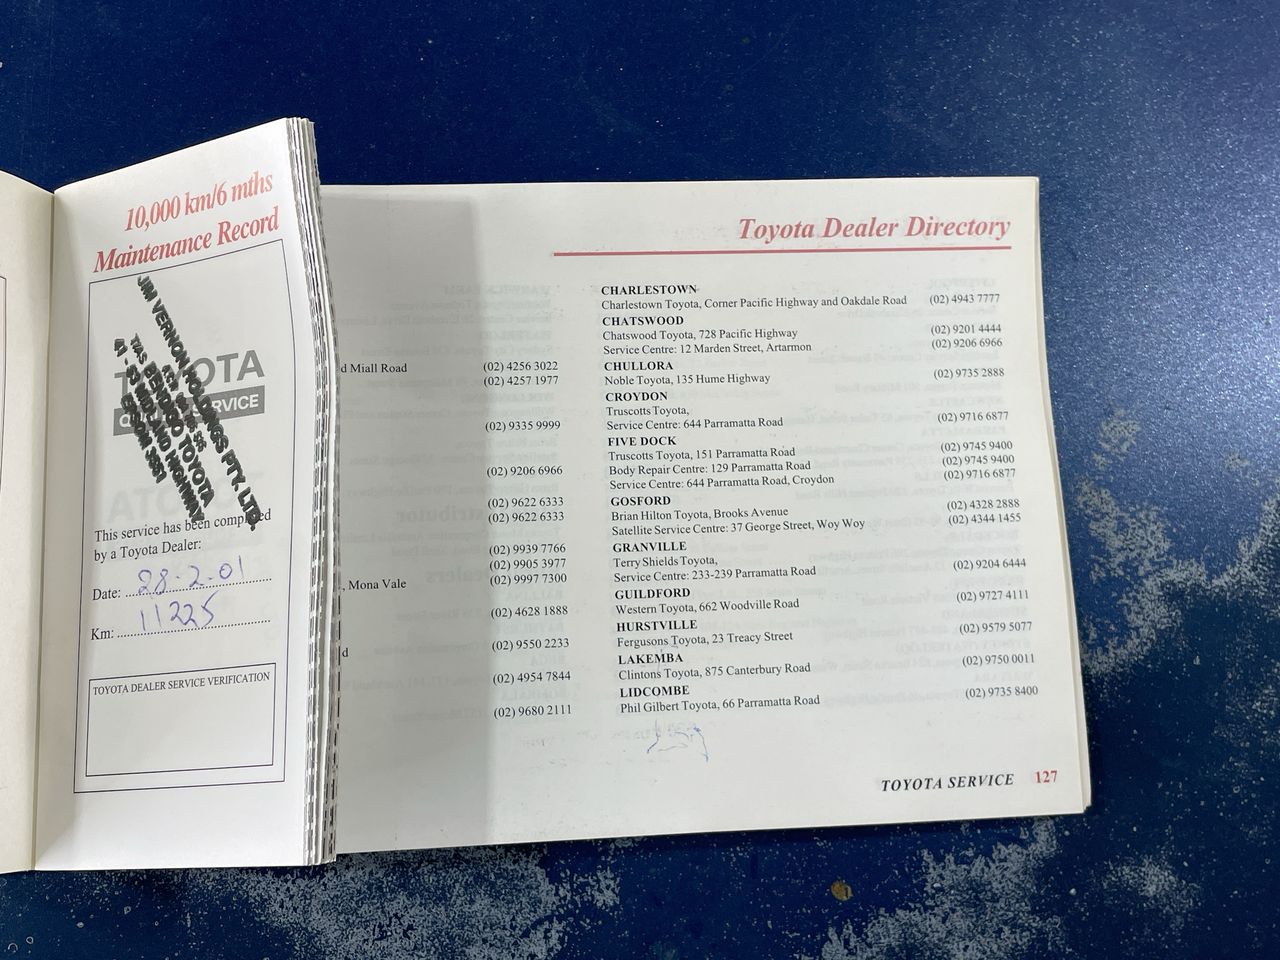 10,000 km/6 mths
Maintenance Record
JIM VERNON HOLDINGS PTY. LTD.
TAS BENDIGO TOYOTA
TOYOTA
SERVICE
This service has been completed
by a Toyota Dealer:
Date: 28-2-01
Km: 11225
TOYOTA DEALER SERVICE VERIFICATION
d Miall Road (02) 4256 3022
(02) 4257 1977
(02) 9335 9999
(02) 9206 6966
(02) 9622 6333
(02) 9622 6333
(02) 9939 7766
(02) 9905 3977
, Mona Vale (02) 9997 7300
(02) 4628 1888
d (02) 9550 2233
(02) 4954 7844
(02) 9680 2111
Toyota Dealer Directory
CHARLESTOWN
Charlestown Toyota, Corner Pacific Highway and Oakdale Road (02) 4943 7777
CHATSWOOD
Chatswood Toyota, 728 Pacific Highway (02) 9201 4444
Service Centre: 12 Marden Street, Artarmon (02) 9206 6966
CHULLORA
Noble Toyota, 135 Hume Highway (02) 9735 2888
CROYDON
Truscotts Toyota,
Service Centre: 644 Parramatta Road (02) 9716 6877
FIVE DOCK
Truscotts Toyota, 151 Parramatta Road (02) 9745 9400
Body Repair Centre: 129 Parramatta Road (02) 9745 9400
Service Centre: 644 Parramatta Road, Croydon (02) 9716 6877
GOSFORD
Brian Hilton Toyota, Brooks Avenue (02) 4328 2888
Satellite Service Centre: 37 George Street, Woy Woy (02) 4344 1455
GRANVILLE
Terry Shields Toyota,
Service Centre: 233-239 Parramatta Road (02) 9204 6444
GUILDFORD
Western Toyota, 662 Woodville Road (02) 9727 4111
HURSTVILLE
Fergusons Toyota, 23 Treacy Street (02) 9579 5077
LAKEMBA
Clintons Toyota, 875 Canterbury Road (02) 9750 0011
LIDCOMBE
Phil Gilbert Toyota, 66 Parramatta Road (02) 9735 8400
TOYOTA SERVICE 127